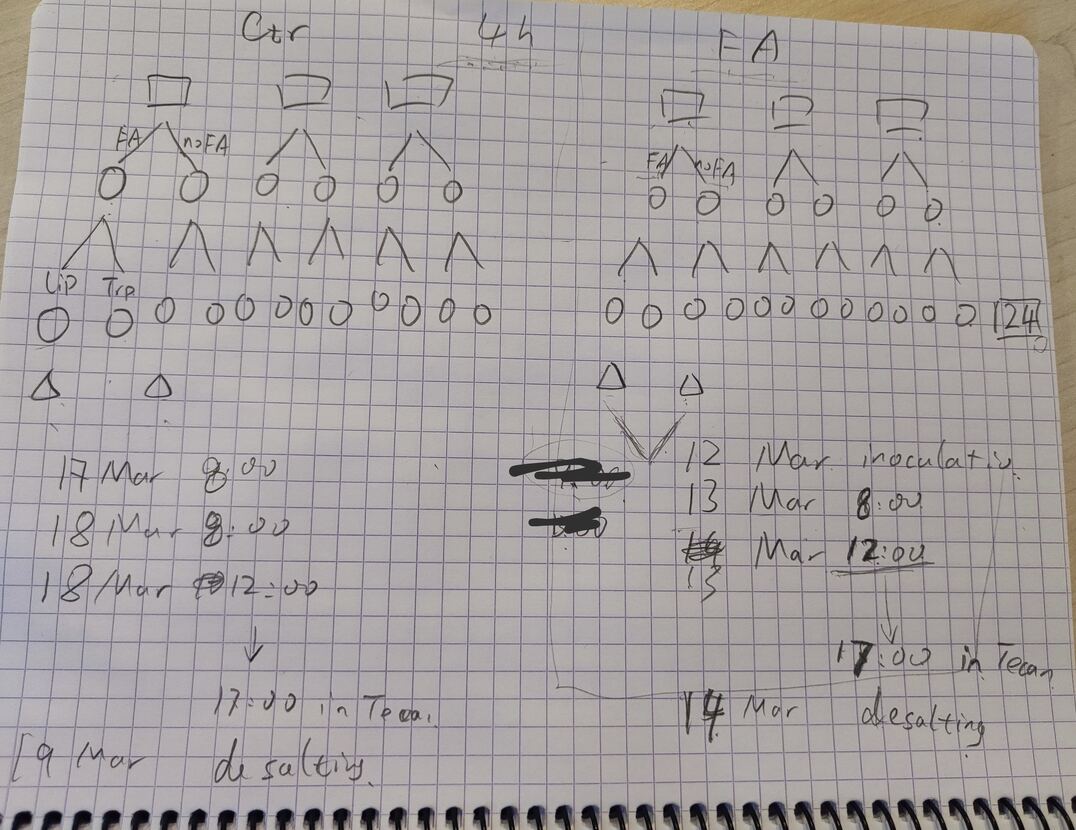 Ctr 4h FA
FA noFA
FA noFA
Lip Trp
24
17 Mar 8:00
18 Mar 8:00
18 Mar 12:00
17:00 in Tecan
19 Mar desalting
12 Mar inoculatio
13 Mar 8:00
13 Mar 12:00
17:00 in Tecan
14 Mar desalting